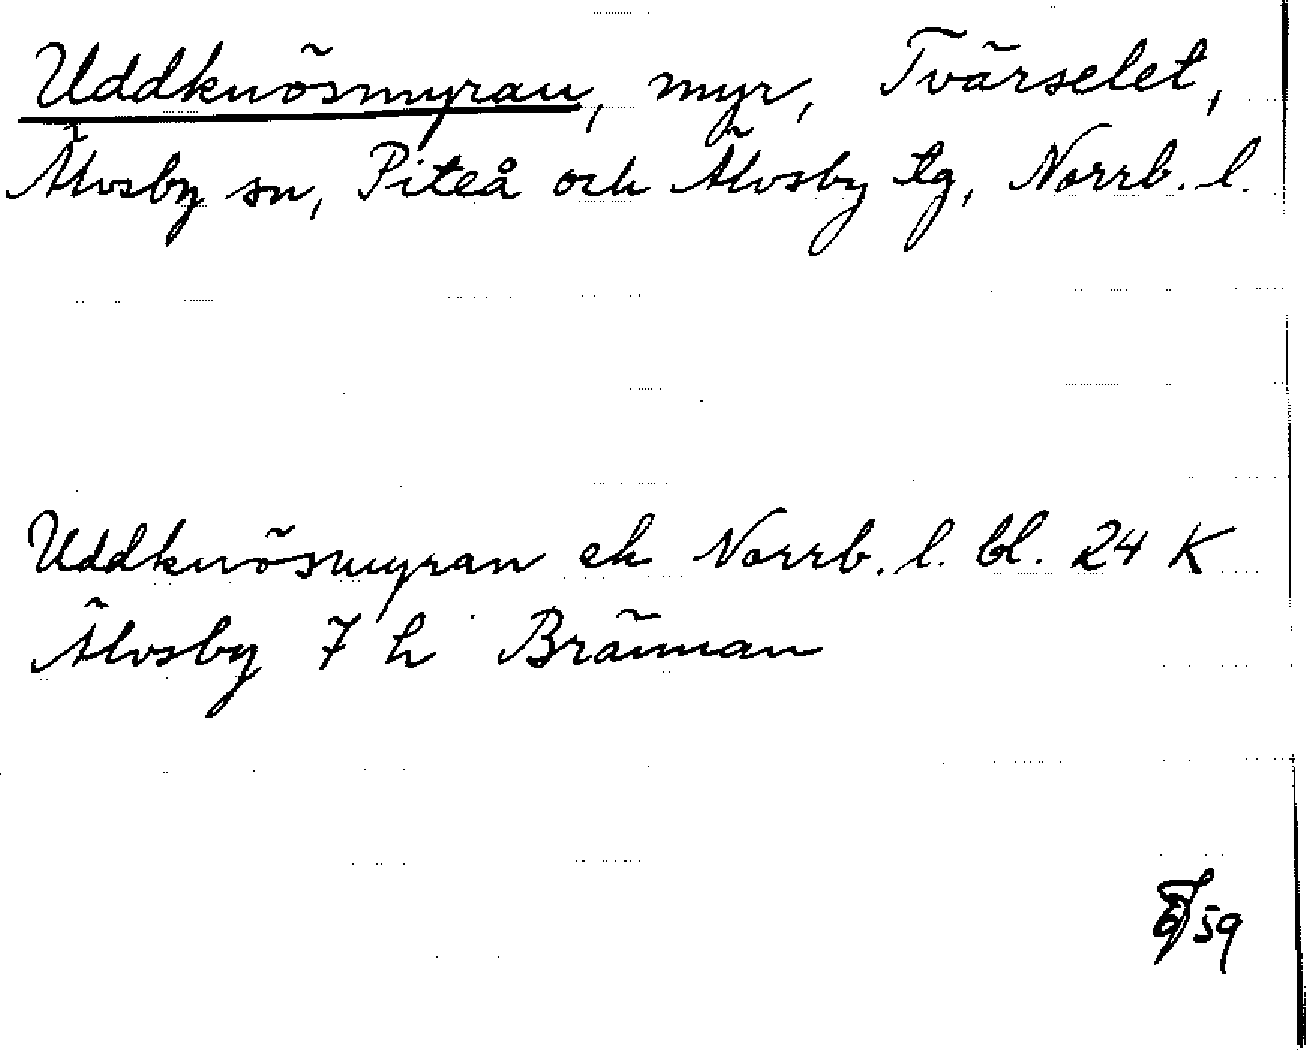 Uddknösmyran, myr, Tvärselet,
Älvsby sn, Piteå och Älvsby tg, Norrb. l.
Uddknösmyran ek Norrb. l. bl. 24 K
Älvsby 7 h Brännan
59